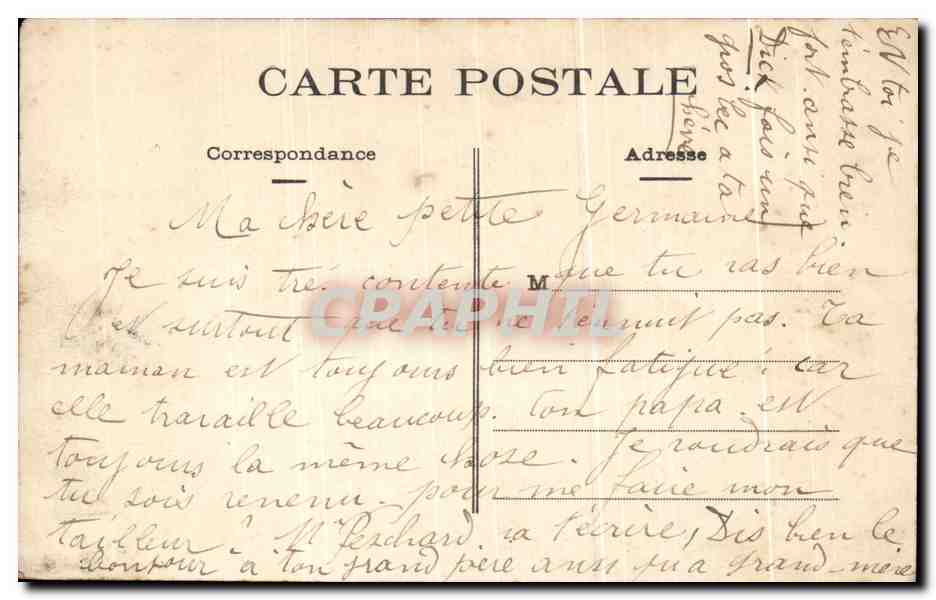 CARTE POSTALE
Correspondance
Adresse
M
Ma chère petite Germaine
Je suis tré contente que tu vas bien
et surtout que tu ne tennuit pas. Ta
maman est toujours bien fatigué car
elle travaille beaucoup. ton papa est
toujours la même chose. Je voudrais que
tu sois revenu. pour me faire mon
tailleur. M Peschard va técrire, Dis bien le
bonjour à ton grand père ansi qu a grand-mère
Et toi je
t'embrasse bien
fort ansi que
Dick fois un
gros bec a ta
chère
CPAPHIL